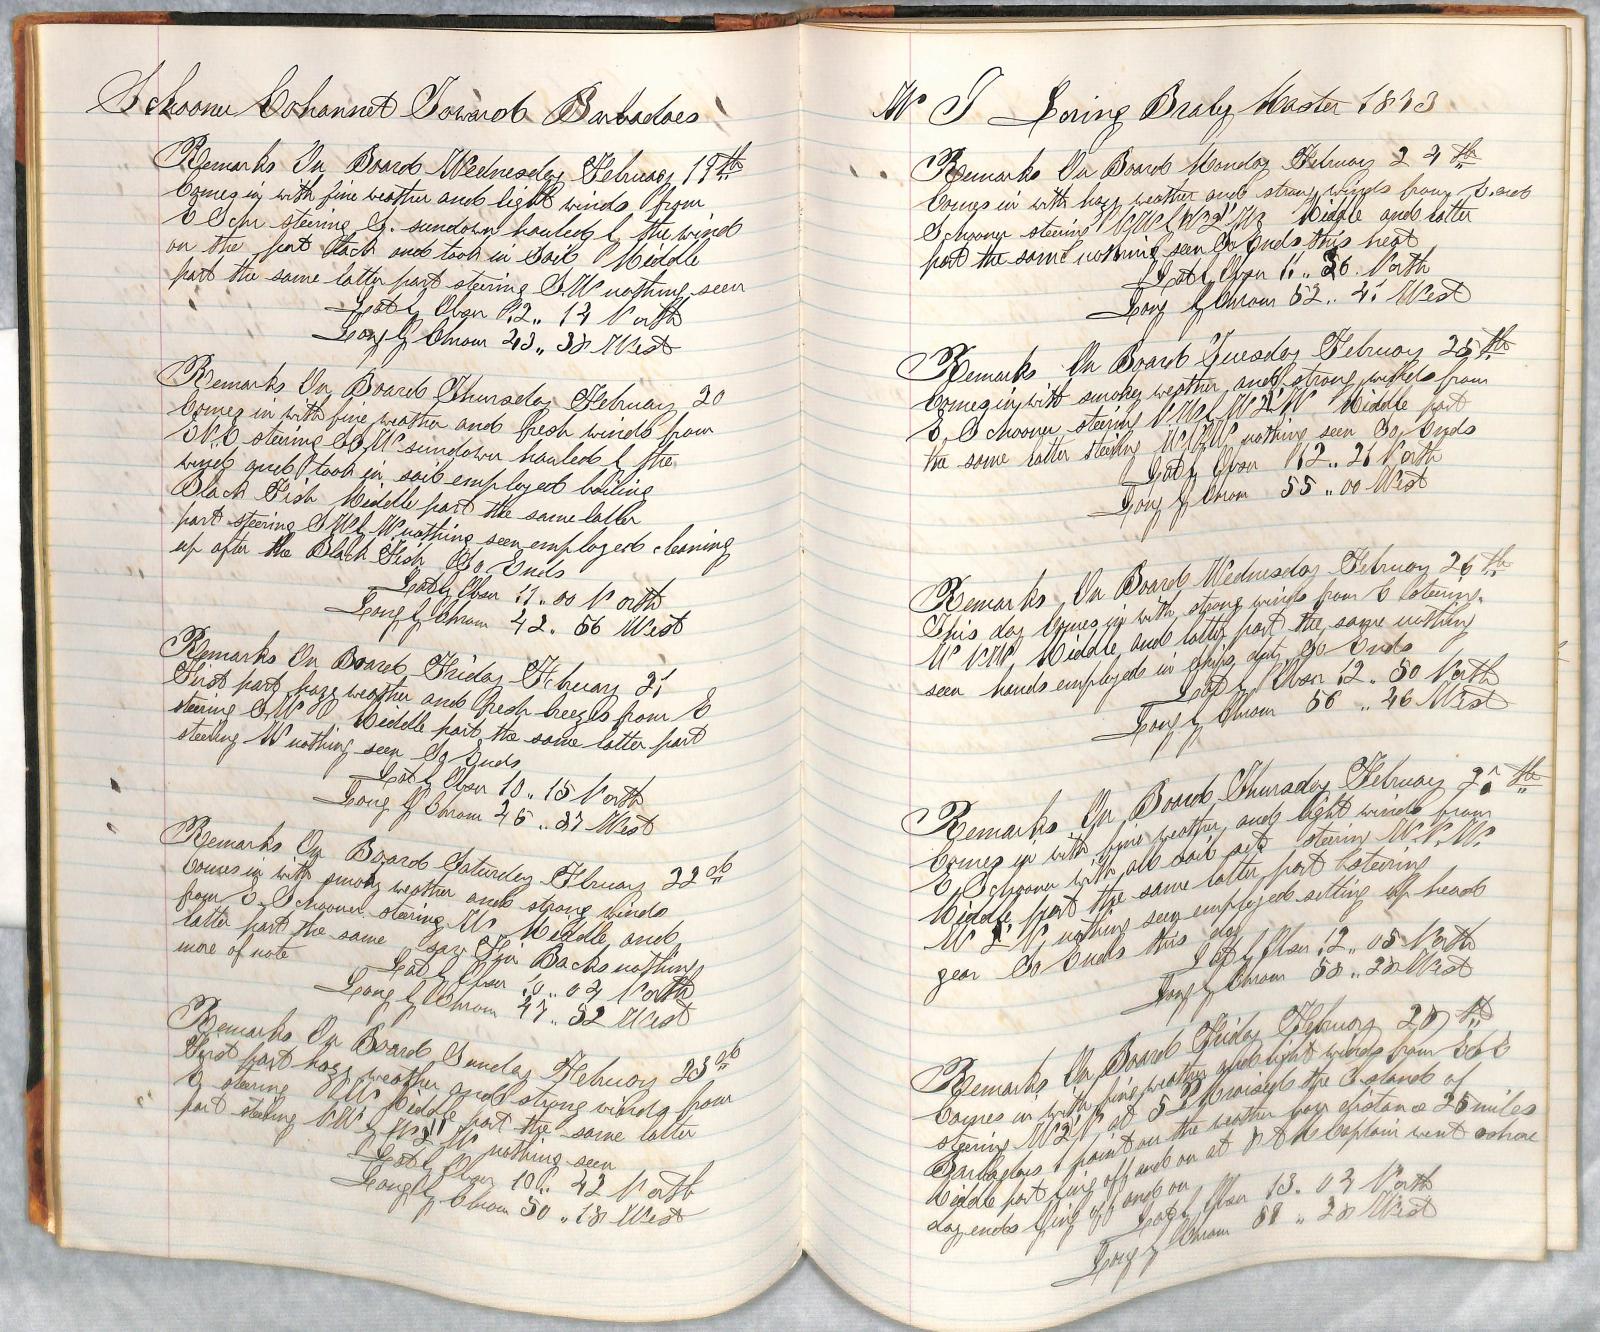 Schooner Cohannet Toward Barbadoes
Remarks On Board Wednesday February 19th
Comes in with fine weather and light winds from
E Schr steering S. sundown hauled by the wind
on the port tack and took in Sail Middle
part the same latter part steering S.W nothing seen
Lat by Obsn 12 .. 14 North
Long by Chrom 43 .. 38 West
Remarks On Board Thursday February 20
Comes in with fine weather and fresh winds from
E.N.E steering S.W sundown hauled by the
wind and took in sail employed boiling
Black Fish Middle part the same latter
part steering S W by W nothing seen employed cleaning
up after the Black Fish So Ends
Lat by Obsn 11 .. 00 North
Long by Chrom 42 .. 56 West
Remarks On Board Friday February 21
First part hazy weather and fresh breezes from E
steering S.W Middle part the same latter part
steering W nothing seen So Ends
Lat by Obsn 10 .. 15 North
Long by Chrom 45 .. 37 West
Remarks On Board Saturday February 22nd
Comes in with smoky weather and strong winds
from E. Schooner steering W Middle and
latter part the same saw Fin Backs nothing
more of note
Lat by Obsn 10 .. 04 North
Long by Chrom 47 .. 52 West
Remarks On Board Sunday February 23rd
First part hazy weather and strong winds from
E steering Middle part the same latter
part steering NW by W 1/2 W nothing seen
Lat by Obsn 10 .. 42 North
Long by Chrom 50 .. 18 West
W T Loring Braley Master 1873
Remarks On Board Monday February 24th
Comes in with hazy weather and strong winds from E. and
Schooner steering NW by W 1/2 W Middle and latter
part the same nothing seen So Ends this
Lat by Obsn 11 .. 36 North
Long by Chrom 52 .. 41 West
Remarks On Board Tuesday February 25th
Comes in with smokey weather and strong winds from
E, Schooner steering N.W by W 1/2 W Middle part
the same latter steering W.N.W nothing seen So Ends
Lat by Obsn 12 .. 21 North
Long by Chrom 55 .. 00 West
Remarks On Board Wednesday February 26th
This day Comes in with strong winds from E Steering
W N W, Middle and latter part the same nothing
seen hands employed in ships duty So Ends
Lat by Obsn 12 .. 50 North
Long by Chrom 56 .. 46 West
Remarks On Board Thursday February 27th
Comes in with fine weather and light winds from
E, Schooner with all sail set steerin W.N.W.
Middle part the same latter part steering
W N nothing seen employed setting up head
gear So Ends this day
Lat by Obsn 12 .. 05 North
Long by Chrom 58 .. 28 West
Remarks On Board Friday February 28th
Comes in with fine weather and light winds from
steering W 1/2 N at 5 raised the Island of
Barbadoes 1 point on the weather bow distance 25 miles
Middle part lying off and on at 8 the Captain went ashore
day ends lying off and on
Lat by Obsn 13 .. 04 North
Long by Chrom 59 .. 38 West